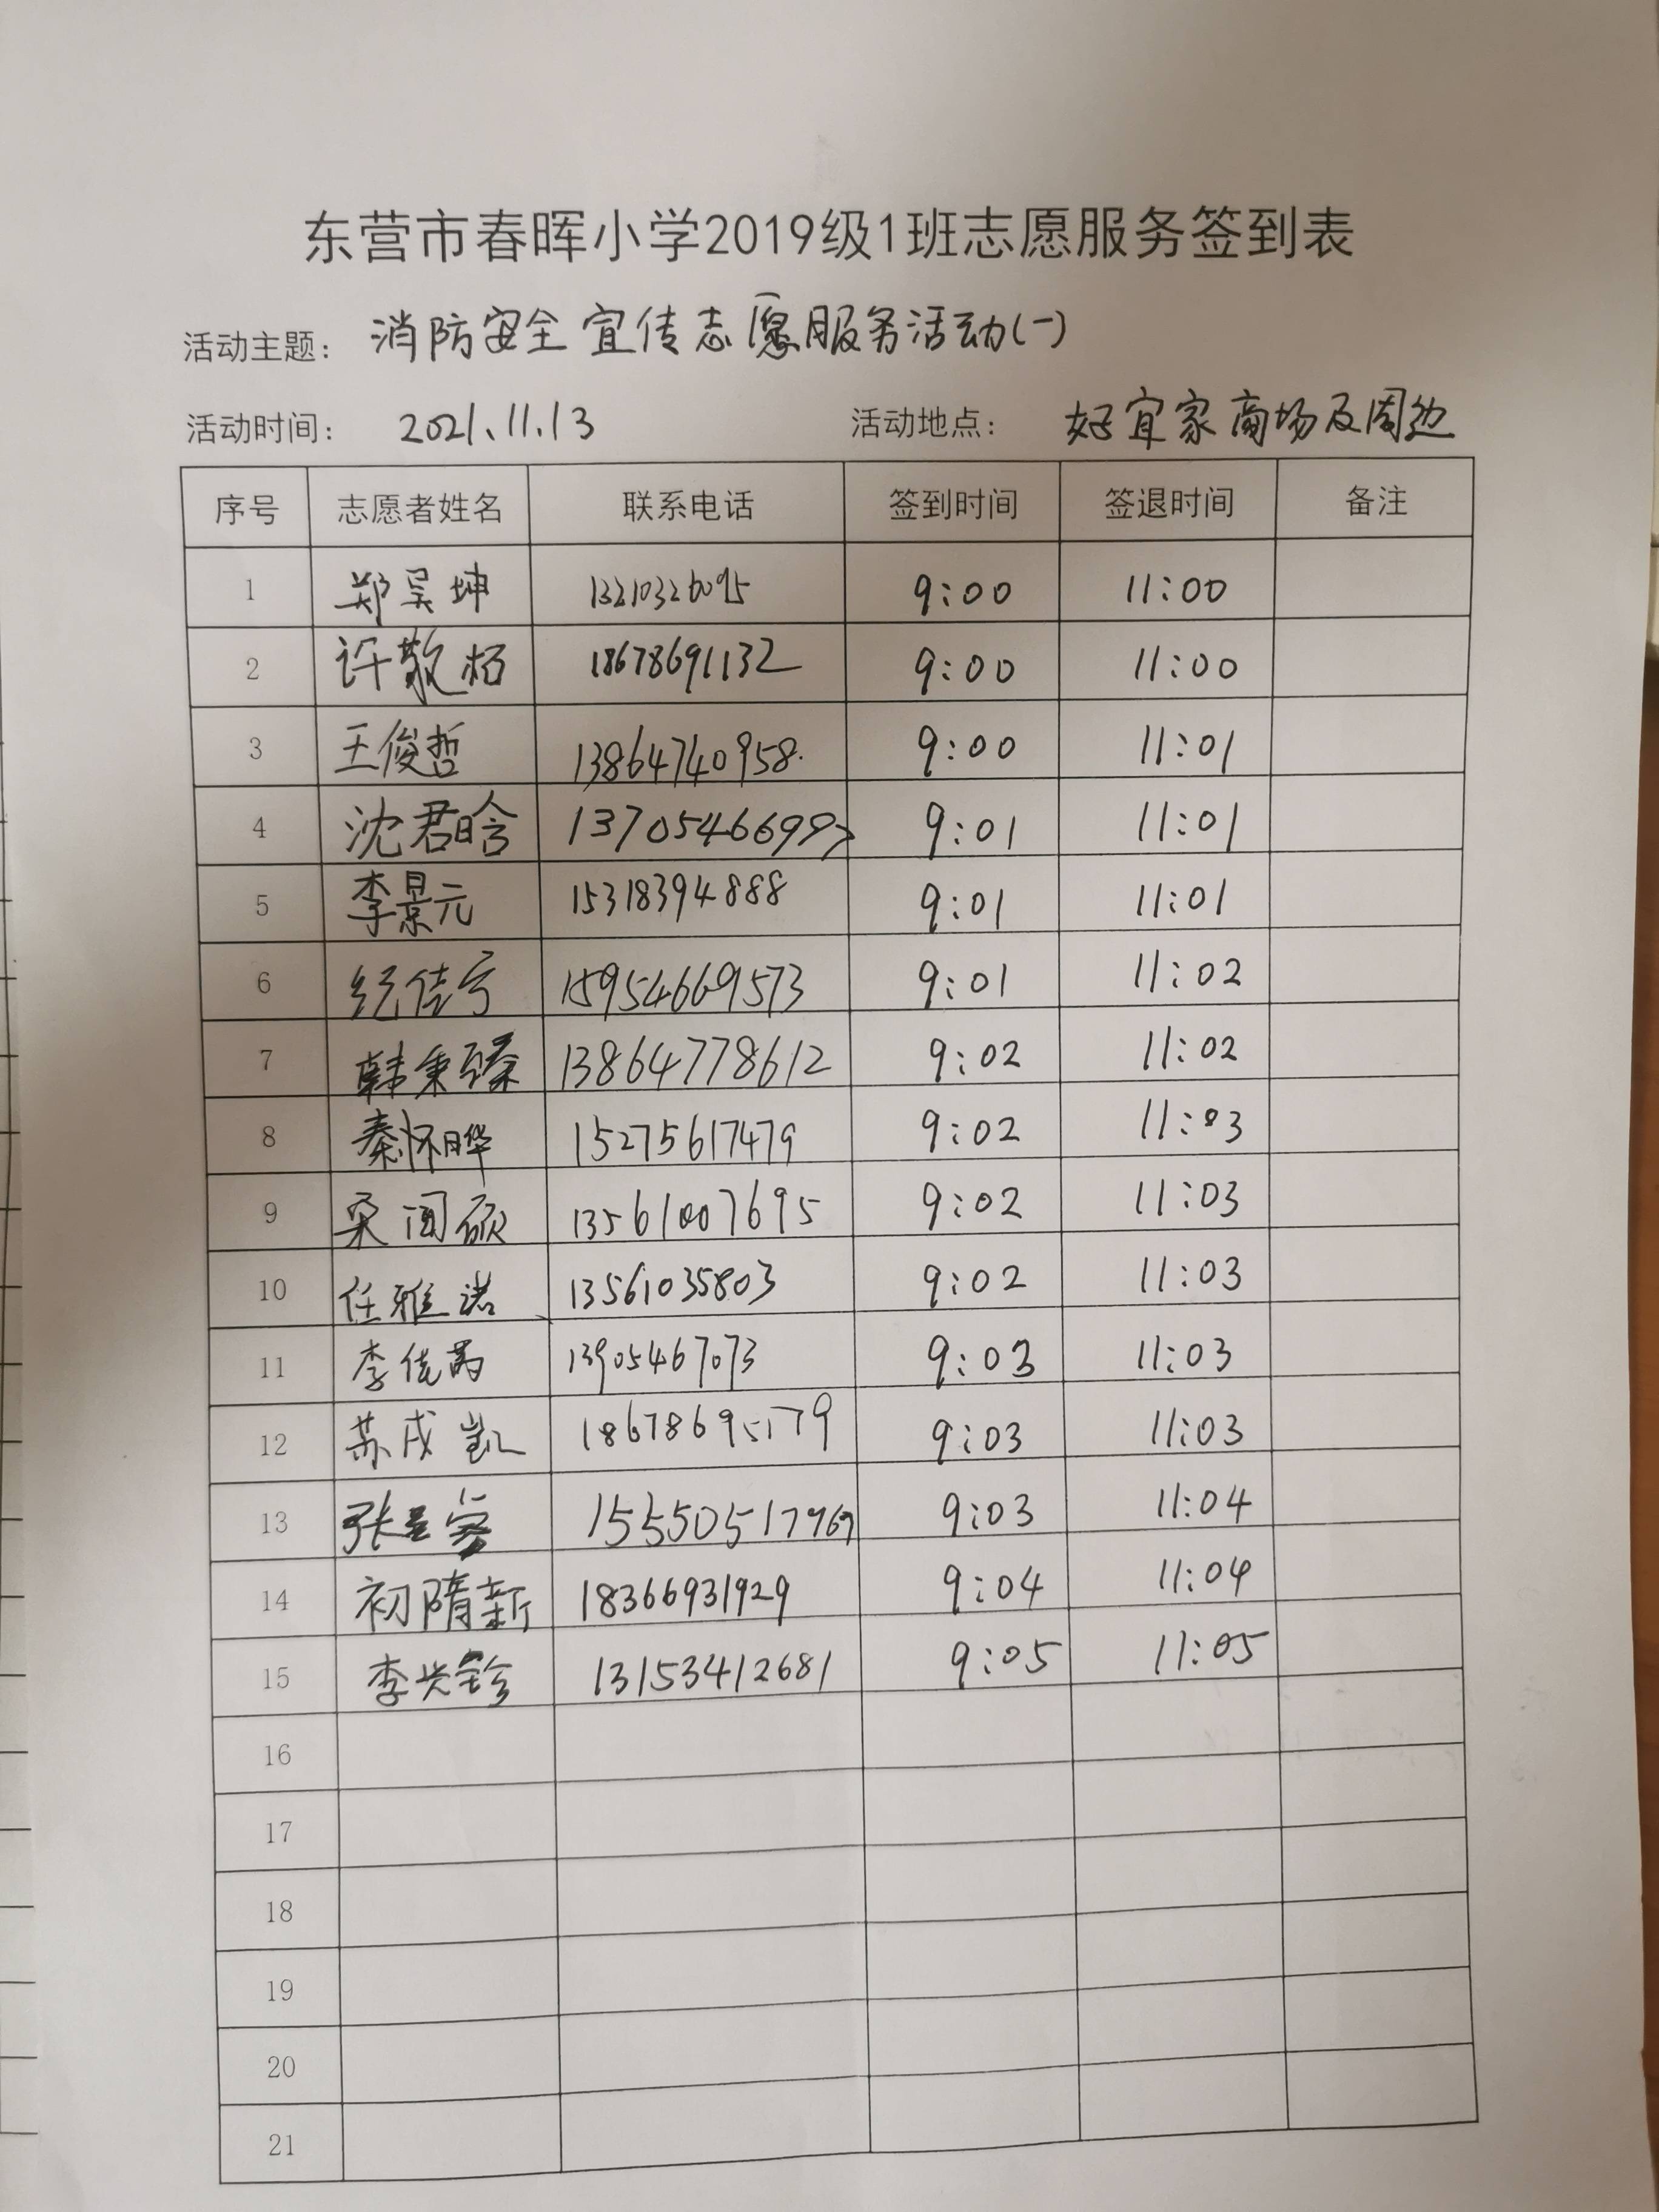 东营市春晖小学2019级1班志愿服务签到表
活动主题： 消防安全宣传志愿服务活动(一)
活动时间： 2021.11.13 活动地点： 好宜家商场及周边
序号 志愿者姓名 联系电话 签到时间 签退时间 备注
1 郑昊坤 13210326095 9:00 11:00
2 许敬栢 18678691132 9:00 11:00
3 王俊哲 13864740958 9:00 11:01
4 沈君晗 13705466997 9:01 11:01
5 李景元 15318394888 9:01 11:01
6 纪佳亏 15954669573 9:01 11:02
7 韩秉臻 13864778612 9:02 11:02
8 秦怀晔 15275617479 9:02 11:03
9 桑闻硕 13561007695 9:02 11:03
10 任雅诺 13561035803 9:02 11:03
11 李佳芮 13905467073 9:03 11:03
12 苏戌凯 18678695179 9:03 11:03
13 张 15550517969 9:03 11:04
14 初隋新 18366931929 9:04 11:04
15 李兴 13153412681 9:05 11:05
16
17
18
19
20
21